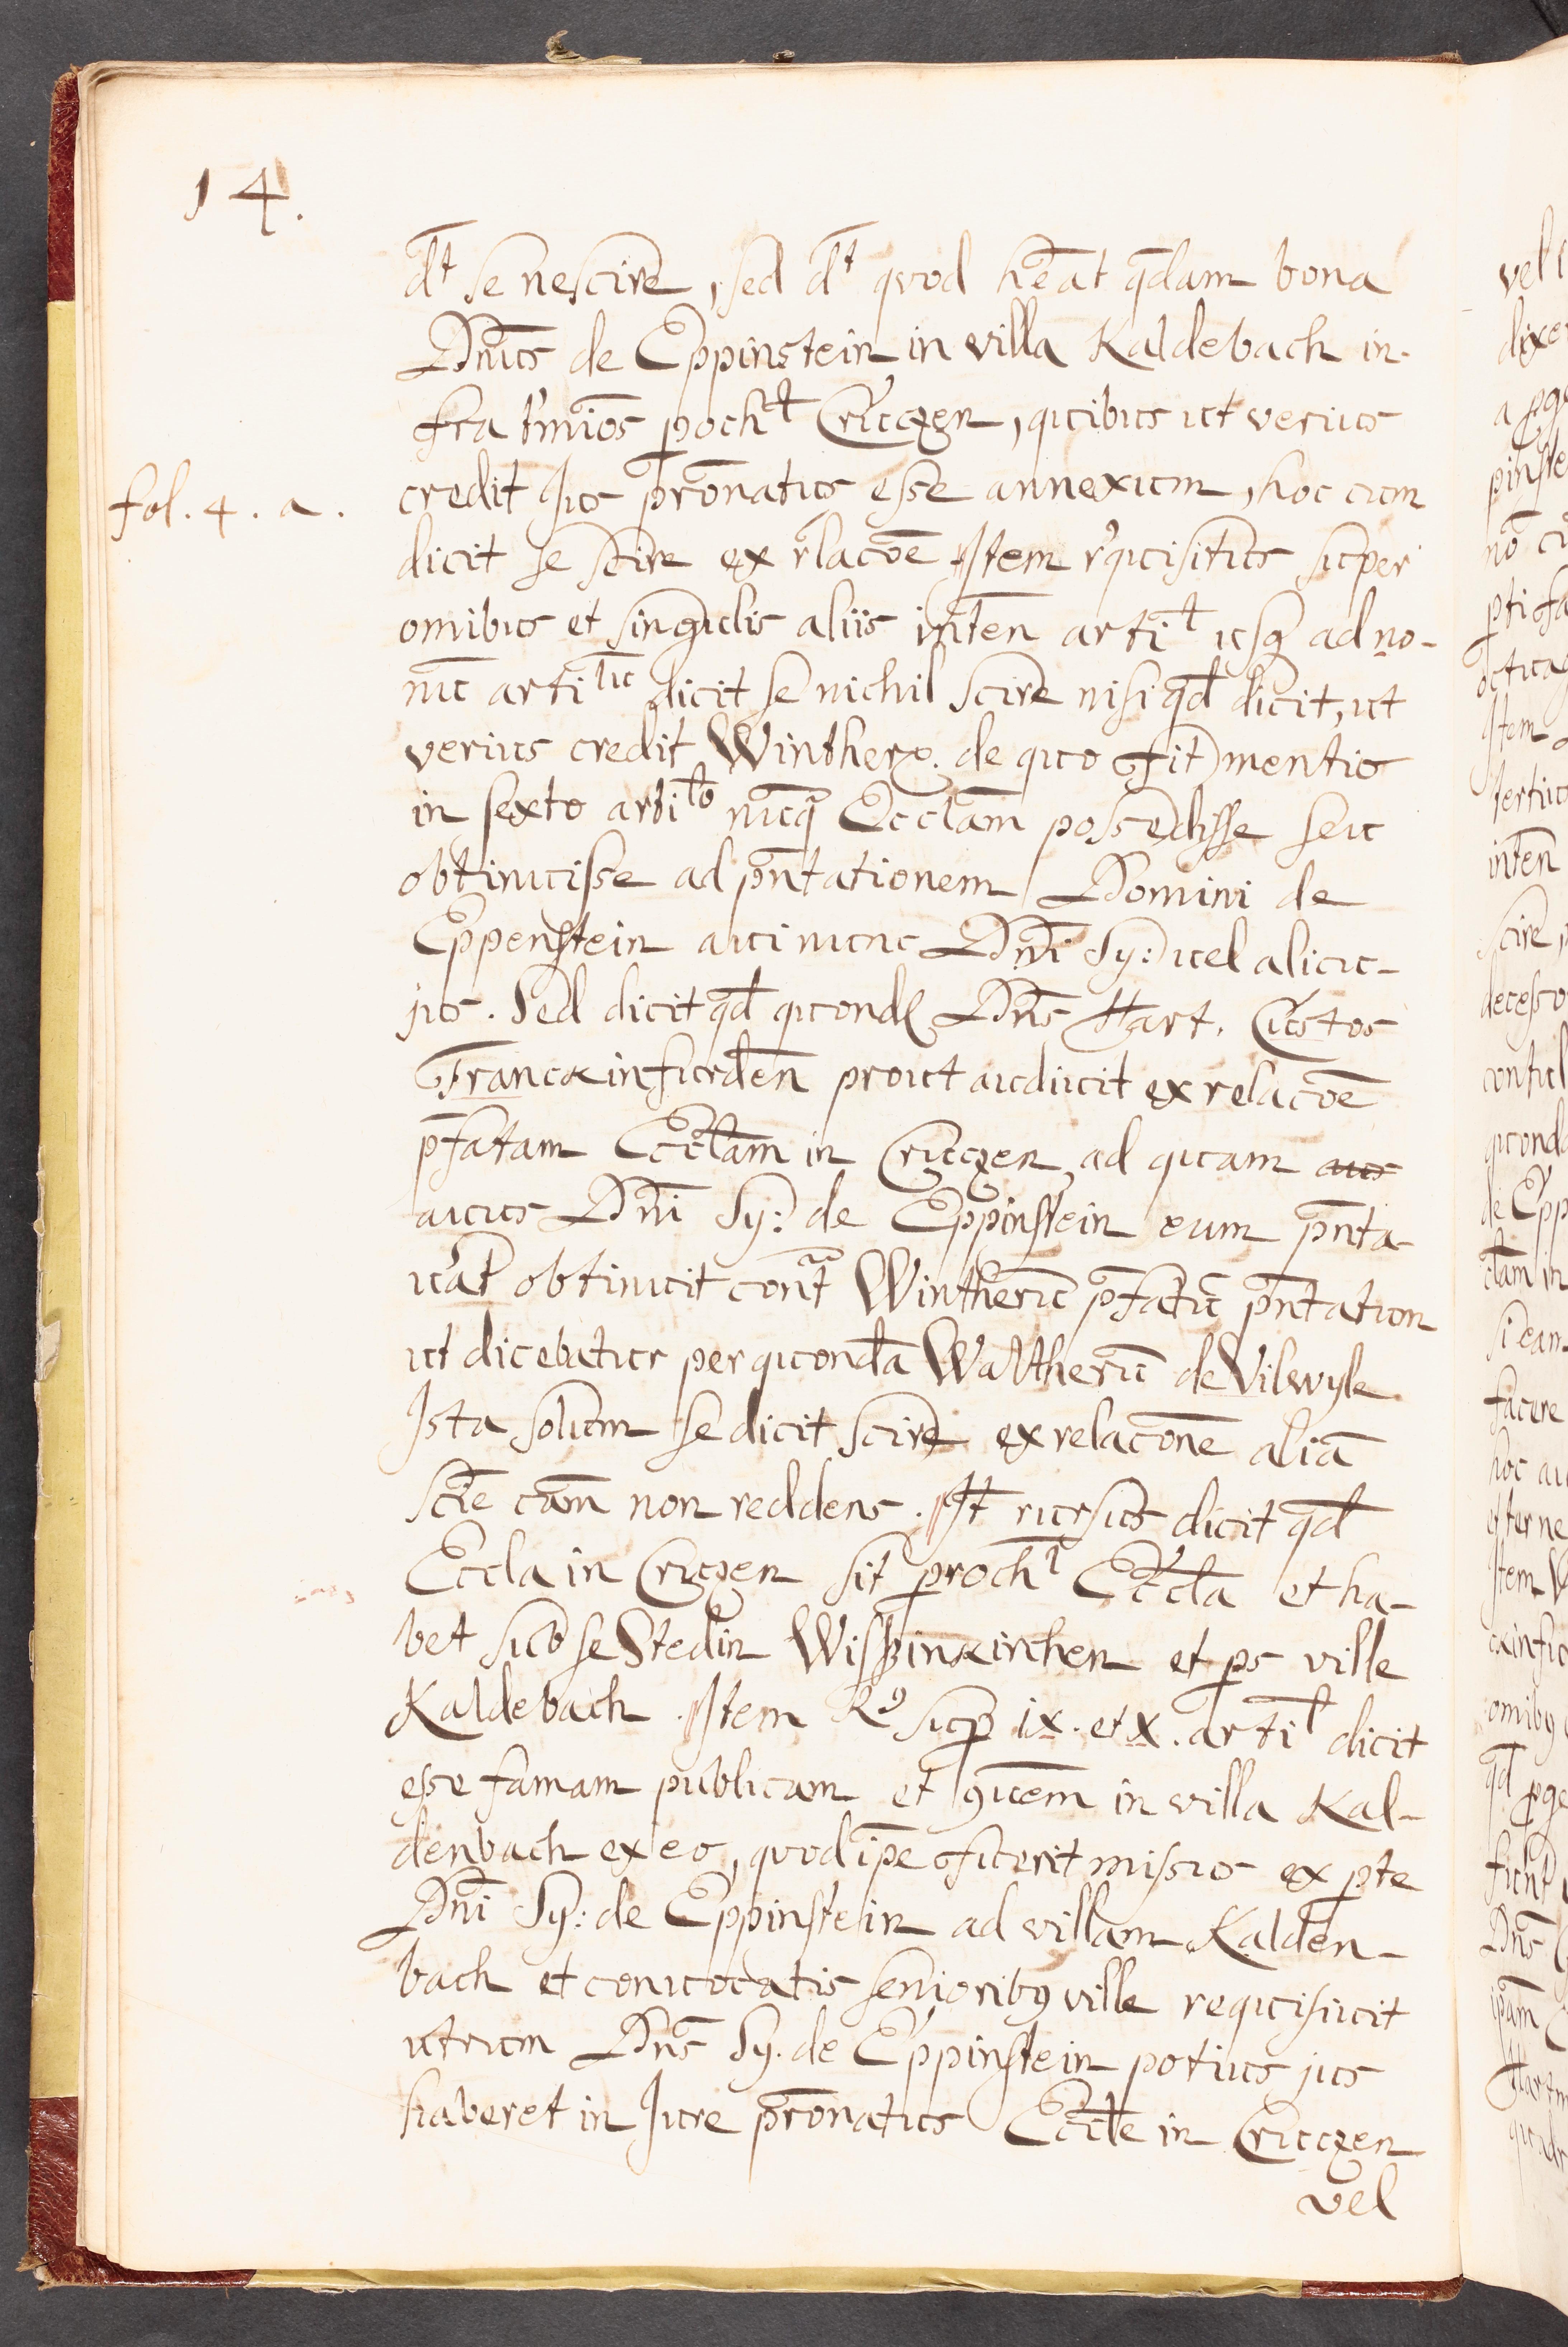 14.
dt̄ se nescire, sed dt̄ quod hēat q̄dam bona
Dnūs de Eppinstein in villa Kaldebach in-
fra t'mīos poch̄t Cruczen, quibus ut verius
fol. 4. a.
credit Jus pr̄onatus esse annexum, hoc cum
dicit se scire ex r'lacōe Jtem r'quisitus super
omibus et singulis aliis inten̄ arti^l usq̨ ad no-
nū arti^lū dicit se nichil scire nisi qd̄ dicit, ut
verius credit Winther. de quo fit mentio
in sexto arti^lo nūq̄ Eccl̄am possedisse seu
obtinuisse ad pn̄tationem Domini de
Eppenstein aui nunc Dn̄i Sy: uel alicu-
jus. Sed dicit qd̄ quond Dn̄s Hart. Custos
Franckinfurden̄ prout audiuit ex relacōe
p̄fatam Eccl̄am in Cruczen, ad quam aus
auus Dn̄i Sy: de Eppinstein eum pn̄ta-
u'at obtinuit cont̄ Wintherū p̄fatū pn̄tation
ut dicebatur per quond̄a Waltherū de Vilwyle
Jsta solum se dicit scire ex relacōne aliā
scīe cām non reddens. Jt̄ rursus dicit qd̄
Eccla in Cruczen sit proch^l Eccl̄a et ha-
bet sub se Stedin Wissinkirchen et ps ville
Kaldebach. Jtem R⁹ sup ix. et x. arti^l dicit
esse famam publicam et ꝯuēm in villa Kal-
denbach ex eo, quod īpe fuerit missus ex pte
Dn̄i Sy: de Eppinstein ad villam Kalden-
bach et conuocatis seniorib⁹ ville requisiuit
utrum Dn̄s Sy. de Eppinstein potius jus
haberet in Jure pr̄onatus Eccl̄e in Cruczen
vel